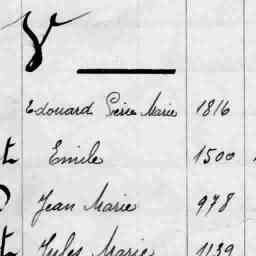 V
Edouard Pierre Marie 1816
t Emile 1500
Jean Marie 978
t Jules Marie 1139